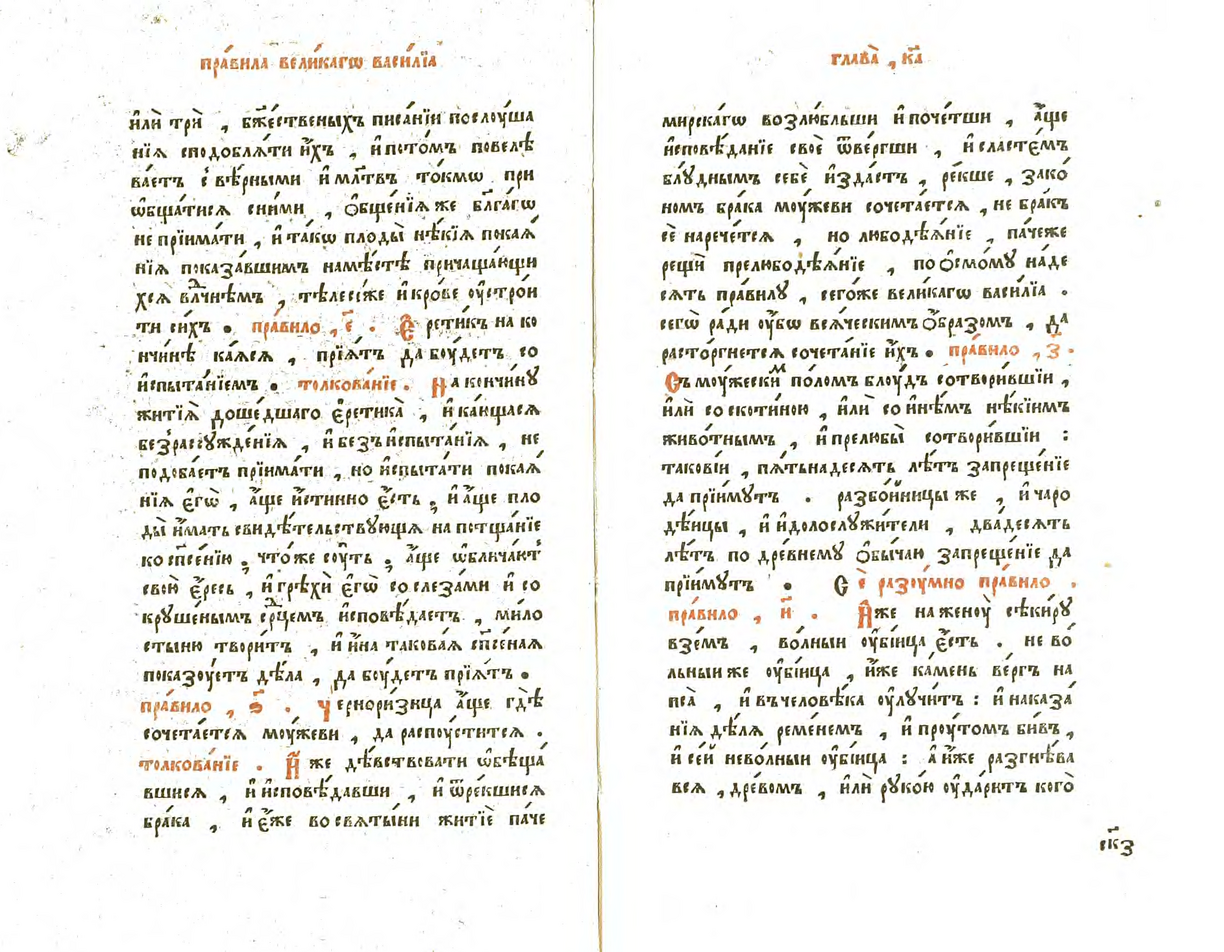 пра́вила вели́кагѡ васи́лїа
и҆лѝ трѝ , бж҃е́ственыхъ писа́нїи послоу́ша
нїѧ сподоблѧ́ти и҆́хъ , и҆ пото́мъ повелѣ
ва́етъ с̾ вѣ́рными и҆ мл҃твъ то́кмѡ при
ѡ҆бща́тисѧ сни́ми , ѻ҆бще́нїѧ же бл҃га́гѡ
не прїима́ти , и҆ та́кѡ плоды̀ нѣ́кїѧ покаѧ́
нїѧ показа́вшимъ намѣ́стѣ причаща́ющи
хсѧ влⷣчнѣмъ , тѣлесѝже и҆ кро́ве оу҆стро́и
ти си́хъ . пра́вило , є҃ . Є҆рети́къ на ко
нчи́нѣ ка́ѧсѧ , прїѧ́тъ да боу́детъ со
и҆спыта́нїемъ . толкова́нїе . На кончи́нꙋ
житїѧ̀ доше́дшаго є҆ретика̀ , и҆ ка́ющасѧ
безразсꙋжде́нїѧ , и҆ безъ и҆спыта́нїѧ , не
подоба́етъ прїима́ти , но и҆спыта́ти покаѧ́
нїѧ є҆гѡ̀ , а҆́ще и҆́стинно є҆́сть , и҆ а҆́ще пло
ды̀ и҆́мать свидѣ́тельствꙋющїѧ на потща́нїе
ко сп҃се́нїю , что́же соу́ть , а҆́ще ѡ҆блича́ѧ
свою̀ є҆́ресь , и҆ грѣхѝ є҆гѡ̀ со слеза́ми и҆ со
крꙋше́нымъ срⷣцемъ и҆сповѣ́даетъ , ми́ло
стыню твори́тъ , и҆ и҆́на такова́ѧ сп҃се́наѧ
показоу́етъ дѣла̀ , да боу́детъ прїѧ́тъ .
пра́вило , ѕ҃ . Черномори́зица а҆́ще гдѣ̀
сочета́етсѧ моу́жеви , да распоу́ститсѧ .
толкова́нїе . И҆́же дѣ́вствовати ѡ҆бѣща́
вшисѧ , и҆ и҆сповѣ́давши , и҆ ѿре́кшисѧ
бра́ка , и҆ є҆́же во свѧты́ни житїѐ па́че
глава̀ , к҃а
мирска́гѡ возлю́бльши и҆ поче́тши , а҆́ще
и҆сповѣ́данїе своѐ ѿве́ргши , и҆ сласте́мъ
блꙋ́днымъ себѐ и҆зда́стъ , ре́кше , зако́
номъ бра́ка моу́жеви сочета́етсѧ , не бра́къ
сѐ нарече́тсѧ , но любодѣѧ́нїе , па́чеже
рещѝ прелюбодѣѧ́нїе , по ѻ҆смо́мꙋ на́де
сѧть пра́вилꙋ , сего́же вели́кагѡ васи́лїа .
сегѡ̀ ра́ди оу҆́бѡ всѧ́ческимъ ѻ҆́бразомъ , да
расто́ргнетсѧ сочета́нїе и҆́хъ . пра́вило , з҃ .
Съ моу́жескиⷨ по́ломъ блоу́дъ сотвори́вшїи ,
и҆лѝ со скоти́ною , и҆лѝ со и҆нѣ́мъ нѣ́кїимъ
живо́тнымъ , и҆ прелюбы̀ сотвори́вшїи :
такові́и , пѧ́тьнадесѧть лѣ́тъ запреще́нїе
да прїи́мꙋтъ . разбо́йницы же , и҆ чаро
дѣ́ицы , и҆ и҆долослꙋжи́тели , два́десѧть
лѣ́тъ по дре́внемꙋ ѻ҆бы́чаю запреще́нїе да
прїи́мꙋтъ . Сѐ разоу́мно пра́вило .
пра́вило , и҃ . И҆́же на женоу̀ сѣки́рꙋ
взе́мъ , во́лныи оу҆бі́ица є҆́сть . не во́
льныи же оу҆бі́ица , и҆́же ка́мень ве́рг на
пса̀ , и҆ въ человѣ́ка оу҆лꙋчи́тъ : и҆ наказа́
нїѧ дѣ́лѧ реме́немъ , и҆ проу́томъ би́въ ,
и҆ се́й нево́лныи оу҆бі́ица : а҆ и҆́же разгнѣ́ва
всѧ , дре́вомъ , и҆лѝ рꙋко́ю оу҆да́ритъ кого̀
с҃кз